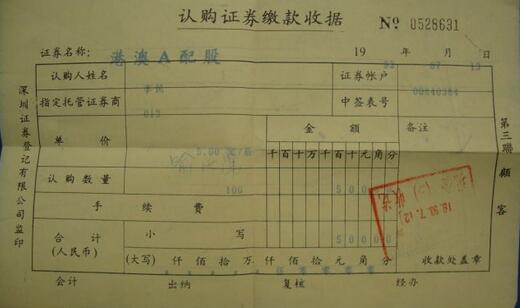 认购证券缴款收据
No 0528631
证券名称: 港澳A配股 19 93 年 07 月 13 日
认购人姓名 证券帐户 00640384
指定托管证券商 013 中签表号
单价 5.00 元/股 金额 备注
千百十万千百十元角分
认购数量 100 50000
手续费
合计 小写 50000
(人民币) (大写) 仟佰拾万仟佰拾元角分 收款处盖章
会计 出纳 复核 经办
深圳证券登记有限公司监印
第三联 顾客